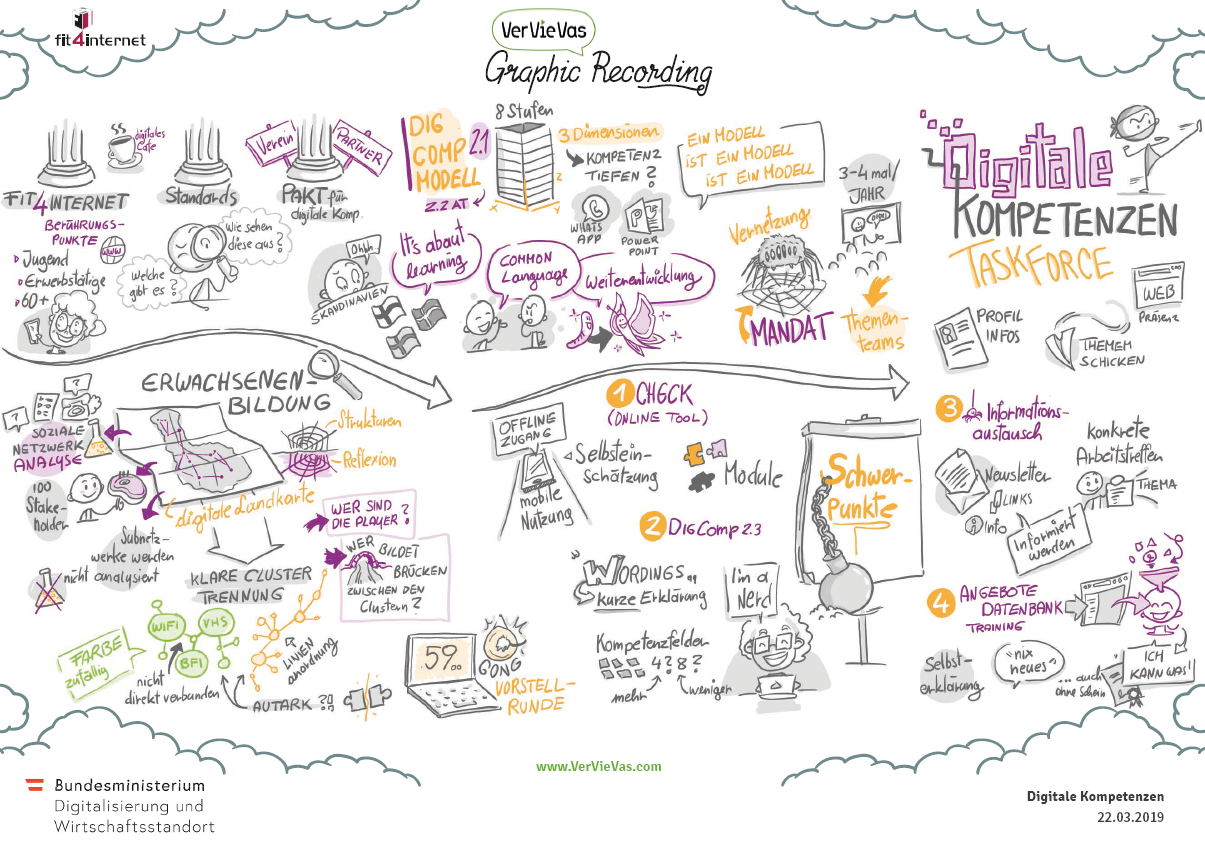 fit4internet
VerVieVas
Graphic Recording
FIT4INTERNET
BERÜHRUNGS-
PUNKTE
www
Jugend
Erwerbstätige
60+
digitales
Cafe
Standards
Wie sehen
diese aus?
Welche
gibt es?
Verein
PARTNER
PAKT für
digitale Komp.
DIG
COMP 2.1
MODELL
2.2 AT
8 Stufen
3 Dimensionen
KOMPETENZ
TIEFEN?
WHATS
APP
POWER
POINT
EIN MODELL
IST EIN MODELL
IST EIN MODELL
3-4 mal/
JAHR
Ohhh...
SKANDINAVIEN
It's about
learning
COMMON
Language
Weiterentwicklung
Vernetzung
MANDAT
Themen-
teams
Digitale
KOMPETENZEN
TASKFORCE
PROFIL
INFOS
THEMEM
SCHICKEN
WEB
PRÄSENZ
ERWACHSENEN-
BILDUNG
SOZIALE
NETZWERK
ANALYSE
100
Stake-
holder
Strukturen
Reflexion
digitale Landkarte
Subnetz-
werke werden
nicht analysiert
WER SIND
DIE PLAYER?
KLARE CLUSTER
TRENNUNG
WER BILDET
BRÜCKEN
ZWISCHEN DEN
Clustern?
FARBE
zufällig
WiFi
VHS
BFI
nicht
direkt verbunden
LINIEN
anordnung
AUTARK ??
59:00
GONG
VORSTELL-
RUNDE
OFFLINE
ZUGANG
mobile
Nutzung
1 CHECK
(ONLINE TOOL)
Selbstein-
schätzung
Module
2 DIGComp 2.3
"WORDINGS"
kurze Erklärung
Kompetenzfelder
4? 8?
mehr
weniger
I'm a
Nerd
Schwer-
Punkte
3 Informations-
austausch
Newsletter
LINKS
Info
Konkrete
Arbeitstreffen
THEMA
Informiert
werden
4 ANGEBOTE
DATENBANK
TRAINING
Selbst-
erklärung
"nix
neues"
ICH
KANN WAS!
... auch
ohne Schein
www.VerVieVas.com
Bundesministerium
Digitalisierung und
Wirtschaftsstandort
Digitale Kompetenzen
22.03.2019